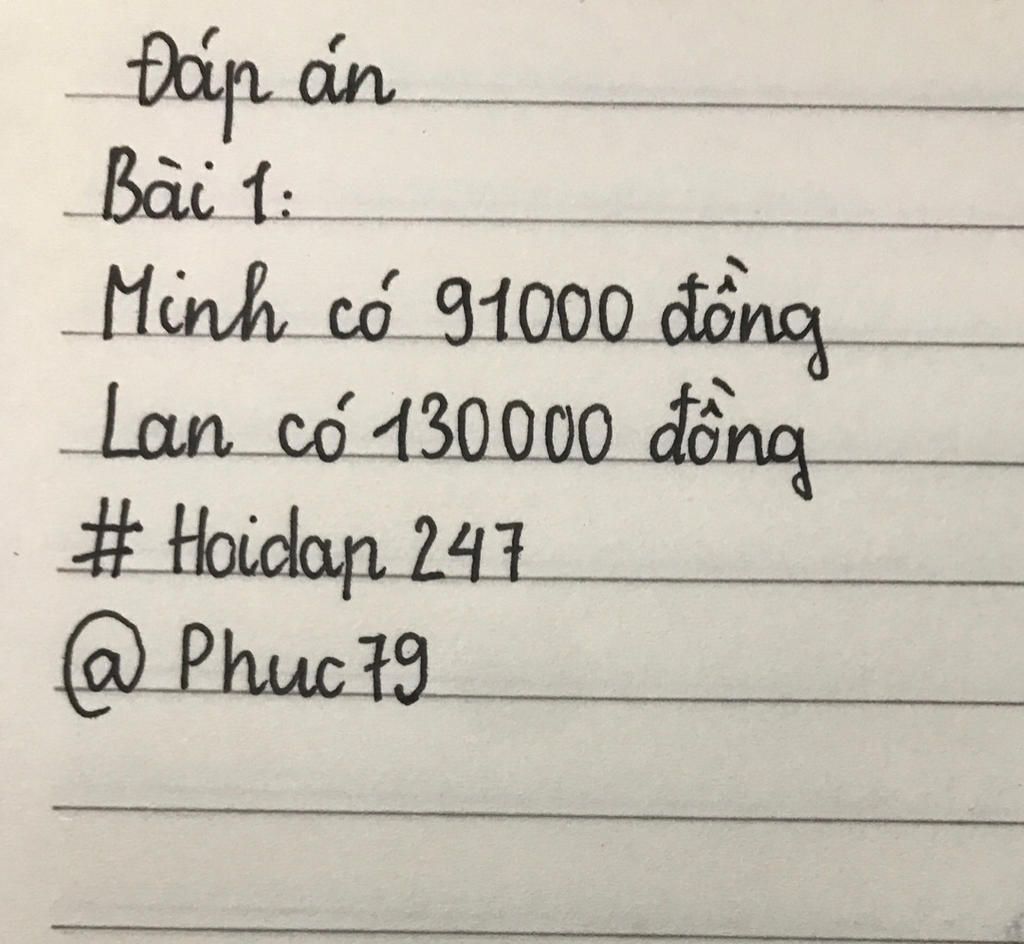 Đáp án
Bài 1:
Minh có 91000 đồng
Lan có 130000 đồng
# Hoidap 247
@ Phuc79